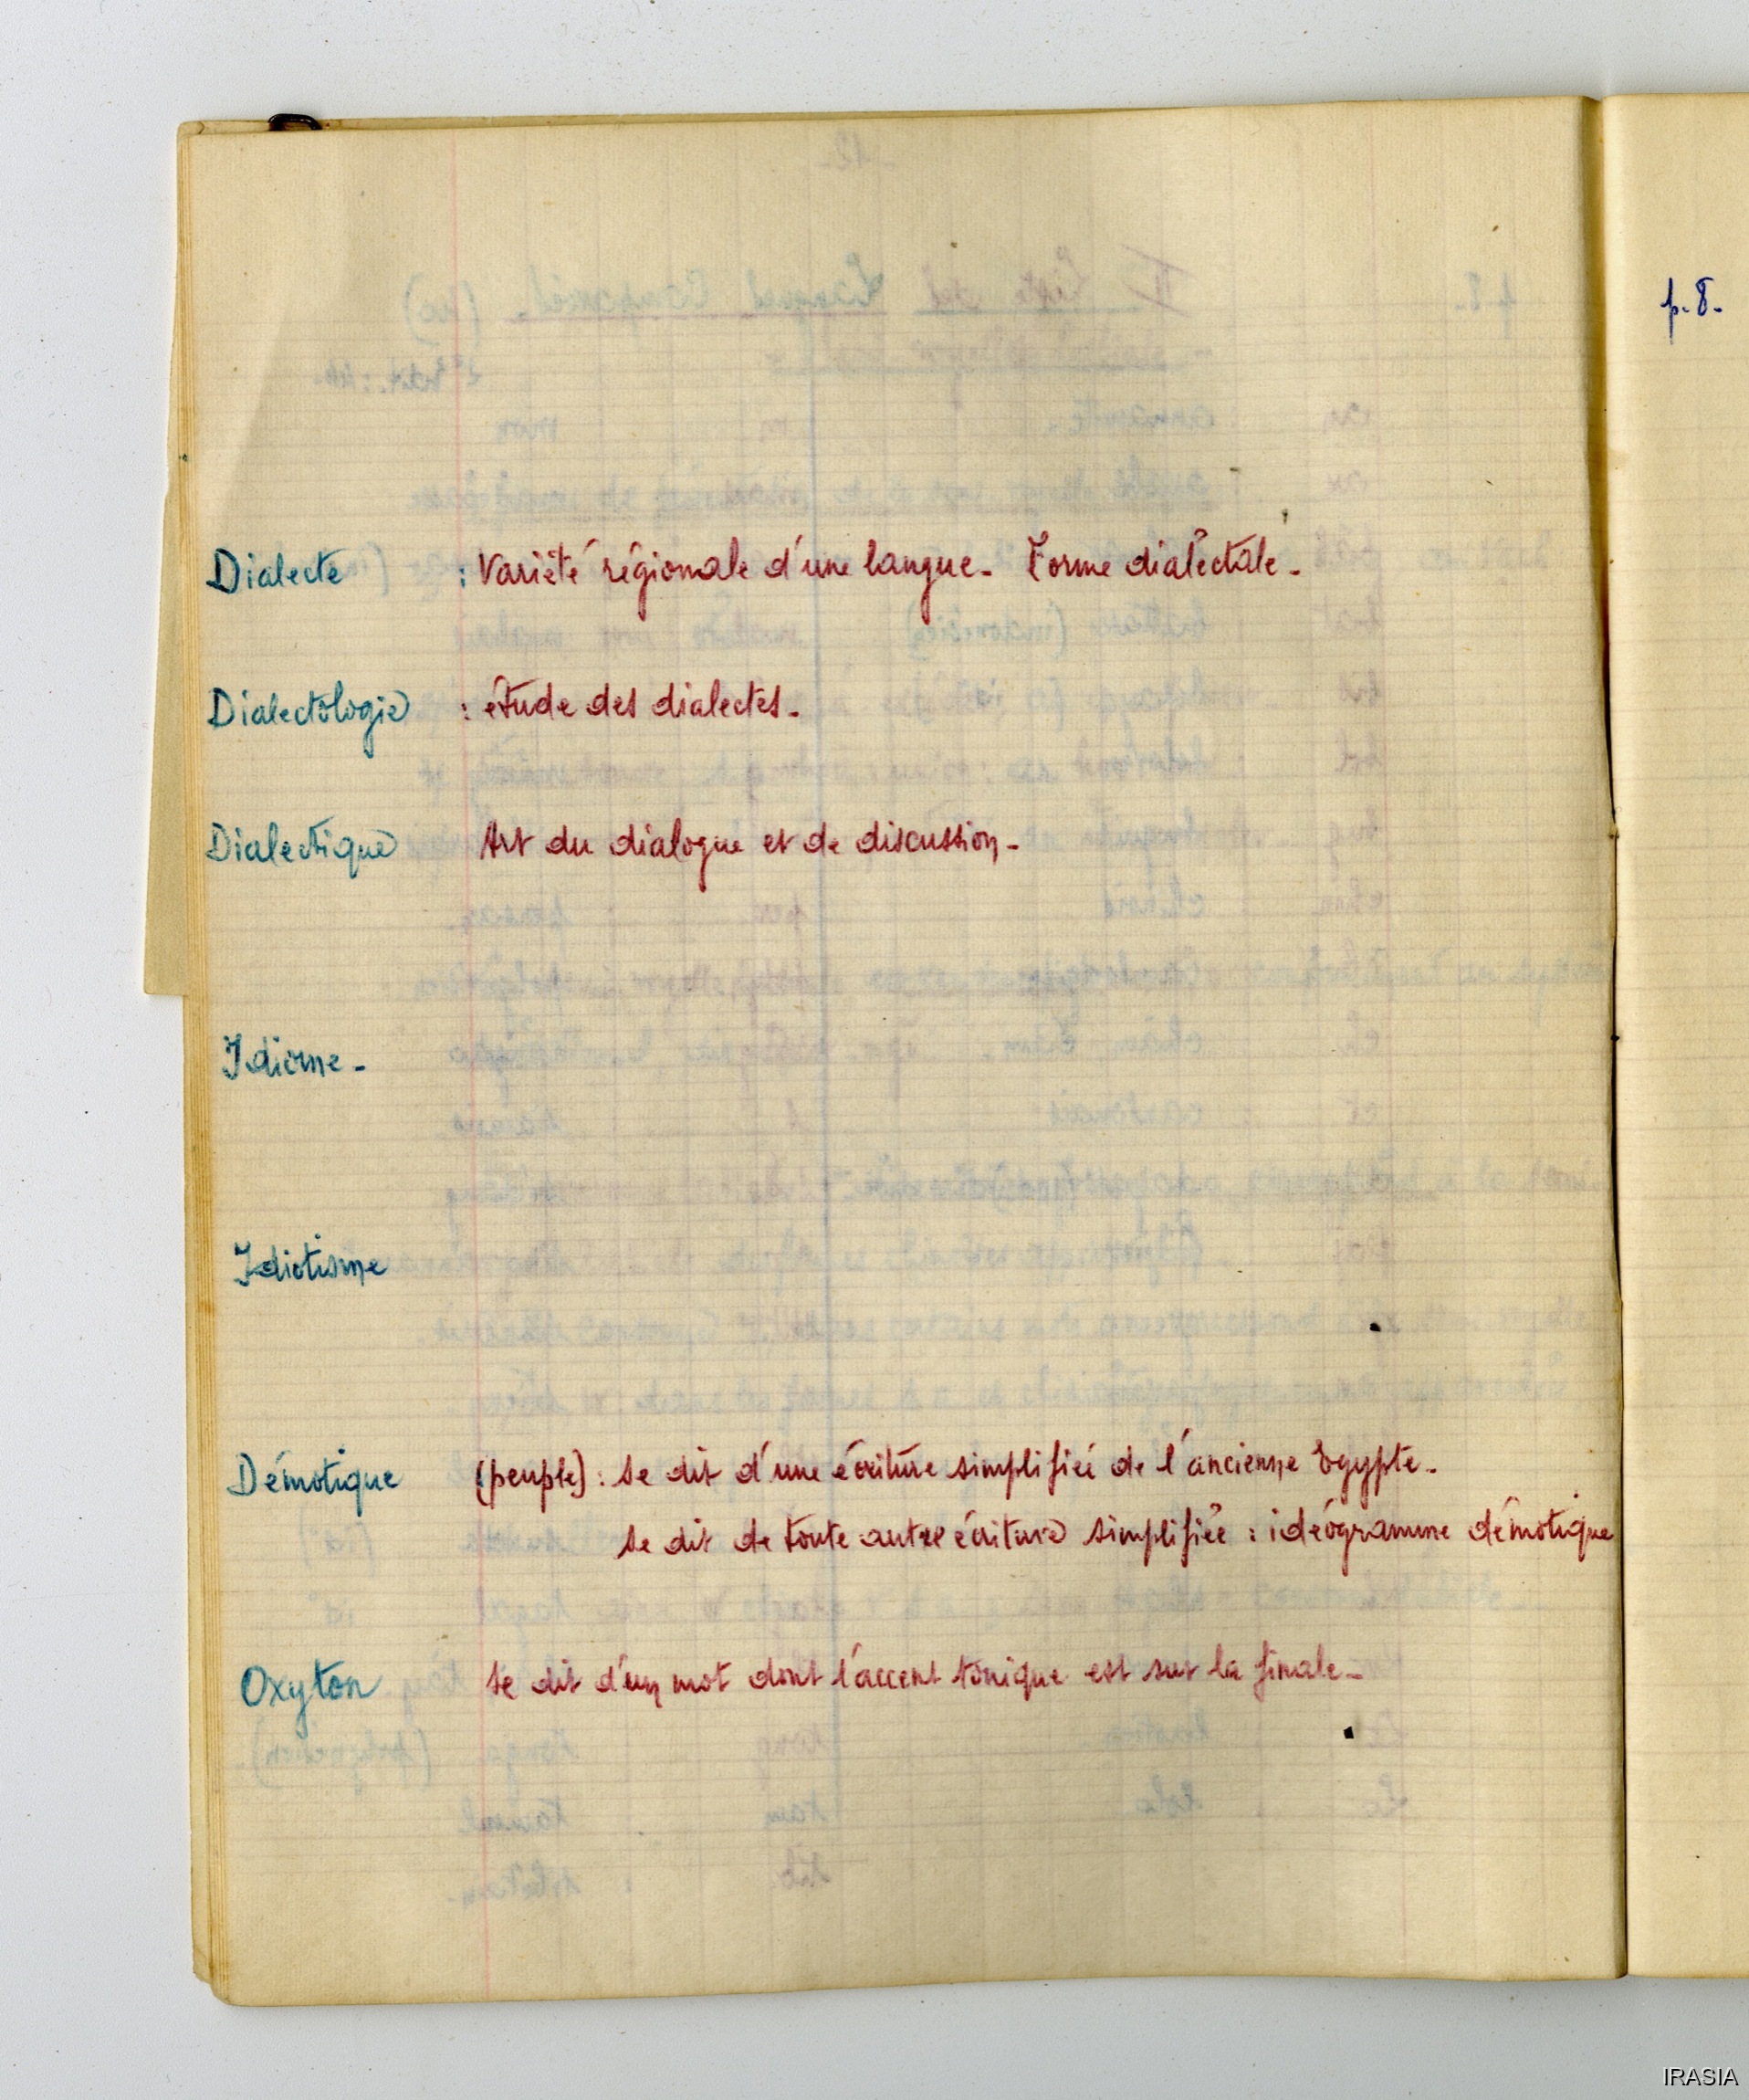 Dialecte : Variété régionale d'une langue. Forme dialectale.
Dialectologie : étude des dialectes.
Dialectique Art du dialogue et de discussion.
Idiome.
Idiotisme
Démotique (peuple) : se dit d'une écriture simplifiée de l'ancienne Egypte.
se dit de toute autre écriture simplifiée : idéogramme démotique
Oxyton se dit d'un mot dont l'accent tonique est sur la finale.
p. 8.
IRASIA